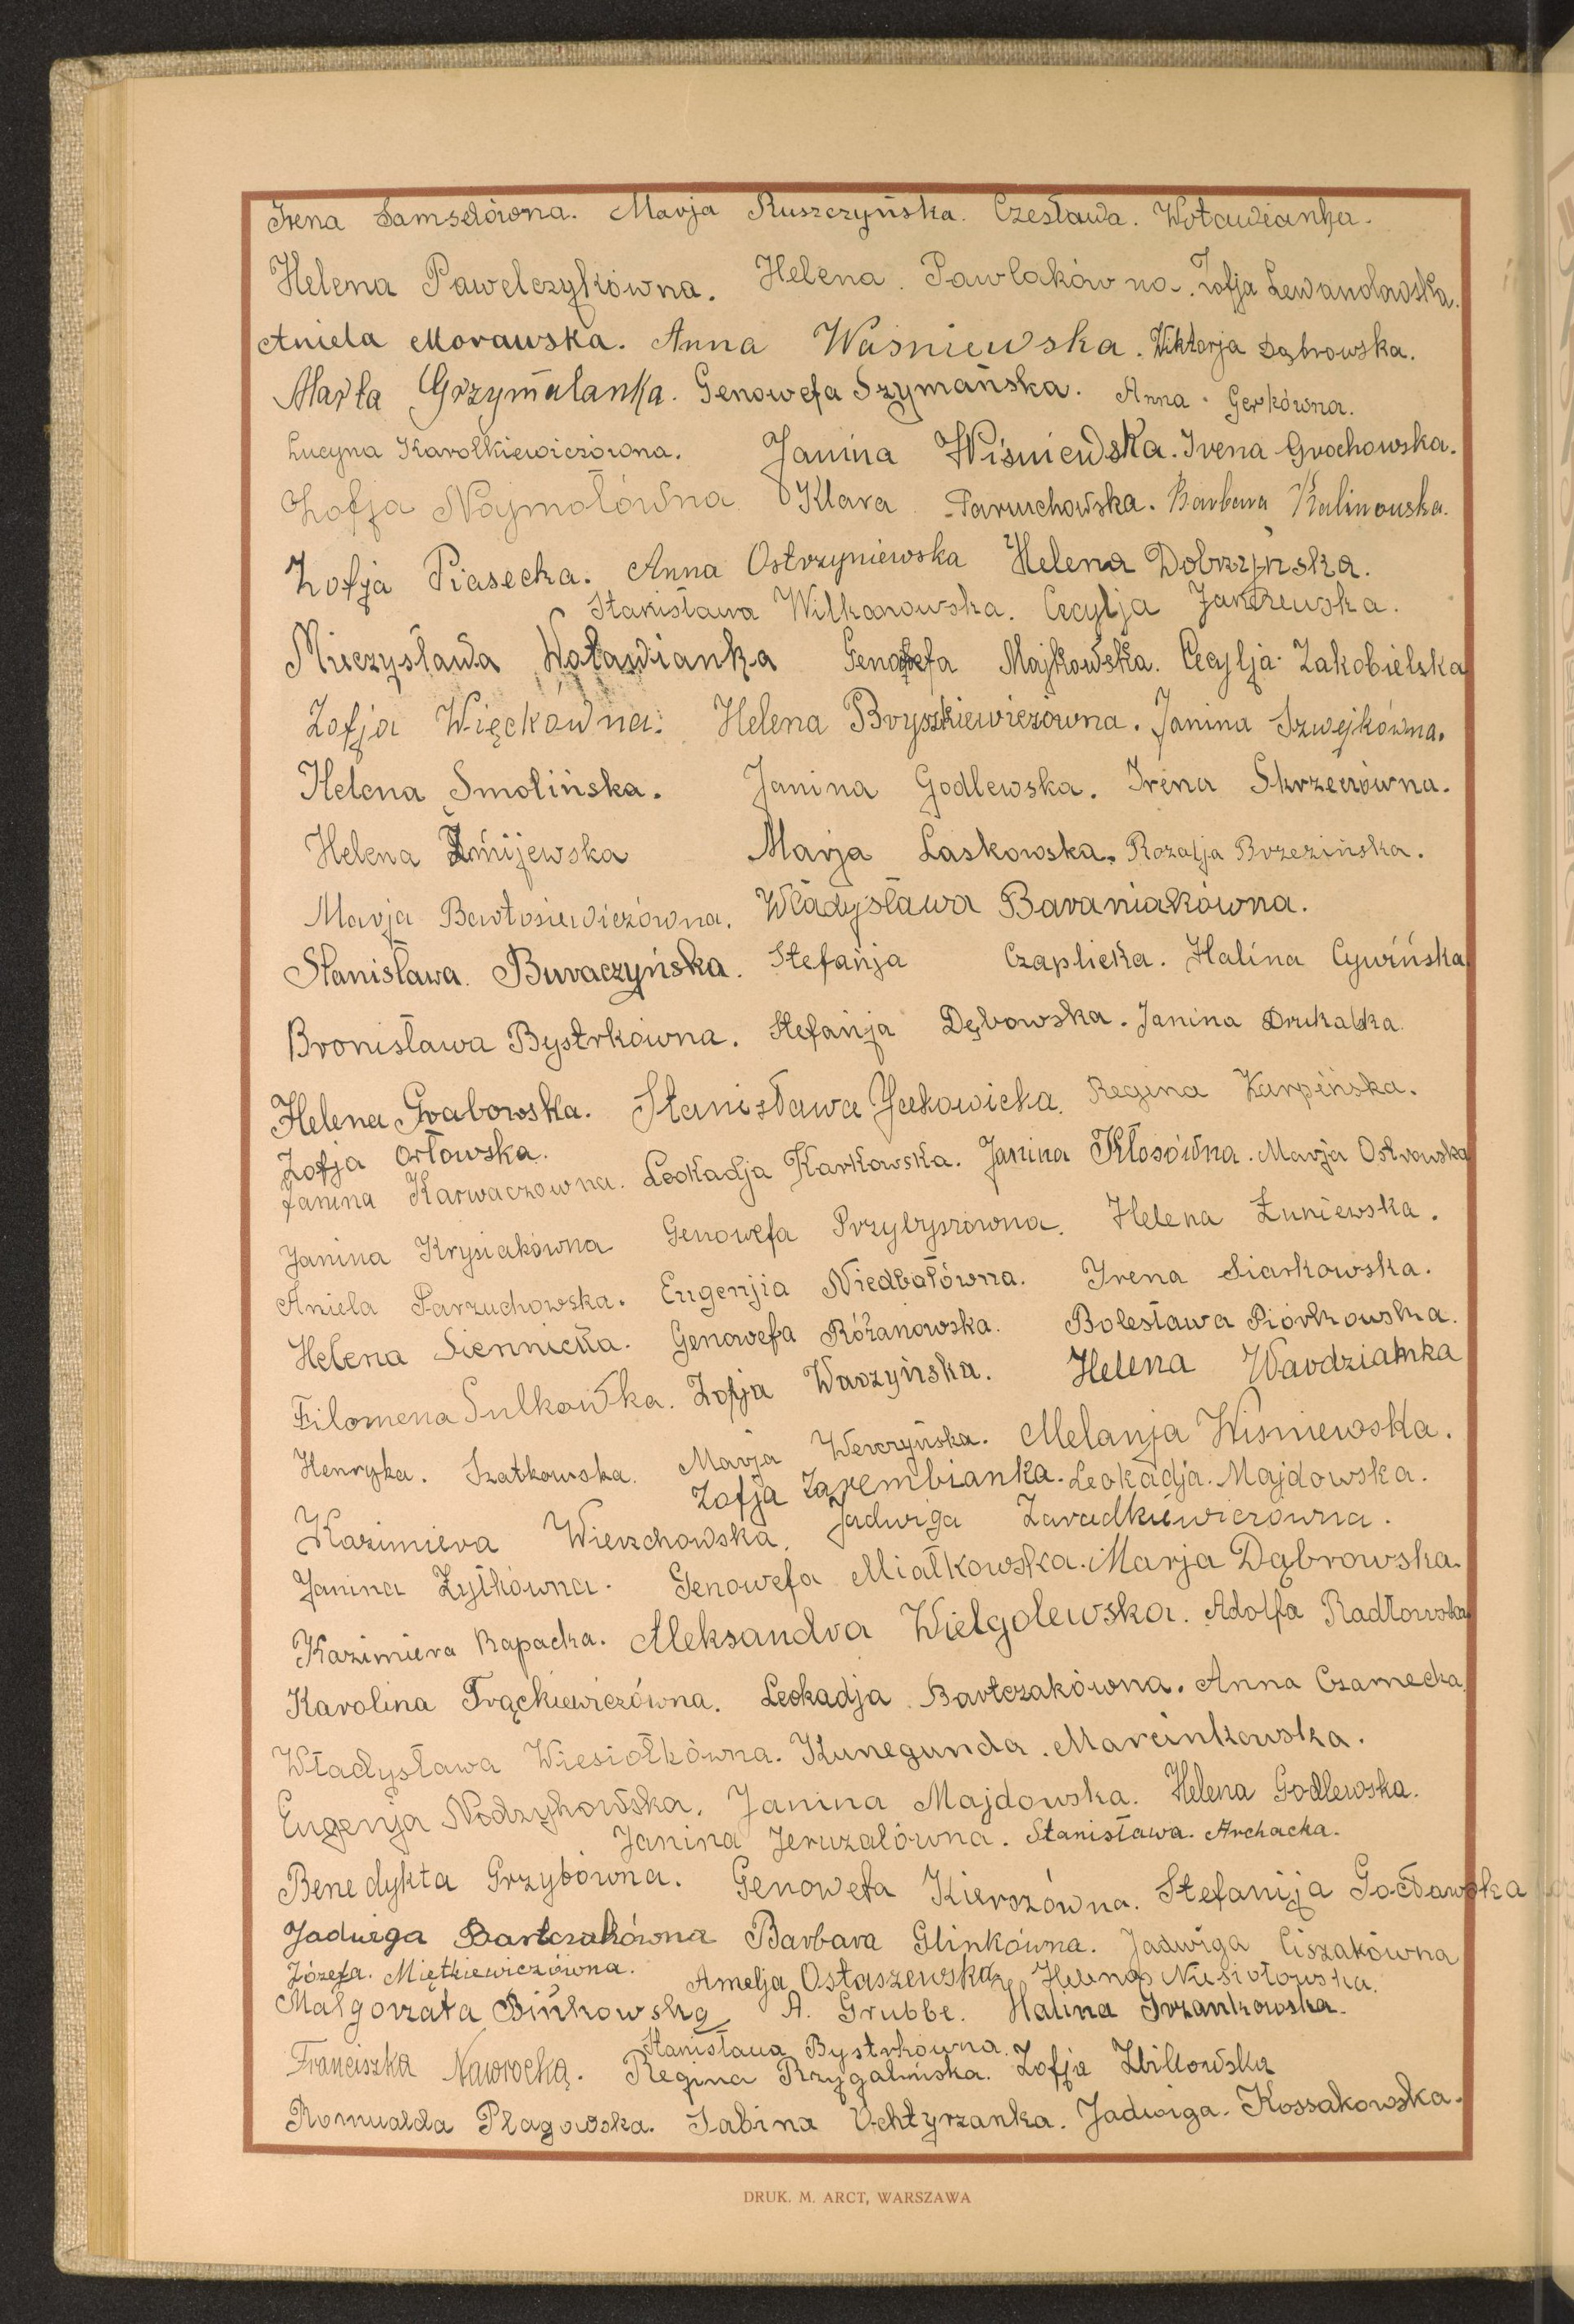 Irena Samselówna. Marja Ruszczyńska. Czesława. Wotawianka.
Helena Pawelczykówna. Helena. Pawlakówna. Zofja Lewandowska.
Aniela Morawska. Anna Waśniewska. Wiktorja Dąbrowska.
Marta Grzymalanka. Genowefa Szymańska. Anna. Gerkówna.
Lucyna Karolkiewiczówna. Janina Wiśniewska. Irena Grochowska.
Zofja Najmołówna Klara Paruchowska. Barbara Kalinowska.
Zofja Piasecka. Anna Ostrzyniewska Helena Dobrzyńska.
Stanisława Wilkanowska. Cecylja Janczewska.
Mieczysława Wotawianka Genofefa Majkowska. Cecylja Zakobielska
Zofja Więckówna. Helena Bryszkiewiczówna. Janina Szwejkówna.
Helena Smolińska. Janina Godlewska. Irena Skrzecówna.
Helena Żmijewska Marja Laskowska. Rozalja Brzezińska.
Marja Bartosiewiczówna. Władysława Baraniakówna.
Stanisława. Buraczyńska. Stefanja Czaplicka. Halina Cywińska
Bronisława Bystrkówna. Stefanja Dębowska. Janina Drukalska
Helena Grabowska. Stanisława Jackowicka. Regina Karpińska.
Zofja Orłowska.
Janina Karwaczówna. Leokadja Karkowska. Janina Kłosówna. Marja Ostrowska
Janina Krysiakówna Genowefa Przybyszówna. Helena Łuniewska.
Aniela Parzuchowska. Eugenjia Niedbałówna. Irena Siarkowska.
Helena Siennicka. Genowefa Różanowska. Bolesława Piórkowska.
Filomena Sulkowska. Zofja Warzyńska. Helena Wardzianka
Henryka. Szatkowska. Marja Werczyńska. Melanja Wiśniewska.
Zofja Zarembianka. Leokadja. Majdowska.
Kazimiera Wierzchowska. Jadwiga Zawadkiewiczówna.
Janina Żyłkówna. Genowefa Miałkowska. Marja Dąbrowska.
Kazimiera Rapacka. Aleksandra Wielgolewska. Adolfa Radłowska
Karolina Trąckiewiczówna. Leokadja Bartczakówna. Anna Czarnecka.
Władysława Wiesiołkówna. Kunegunda. Marcinkowska.
Eugenja Nodzykowska. Janina Majdowska. Helena Godlewska.
Janina Jeruzalówna. Stanisława. Archacka.
Benedykta Grzybówna. Genowefa Kierszówna. Stefanija Gocławska
Jadwiga Bartczakówna Barbara Glinkówna. Jadwiga Ciszakówna
Józefa. Miętkiewiczówna. Amelja Ostaszewska, Helena Niesiołowska.
Małgorzata Bińkowska A. Grubbe. Halina Trzankowska.
Stanisława Bystrkówna.
Franciszka Nawrocką. Regina Rzygalińska. Zofja Zbikowska
Romualda Płagowska. Sabina Ochtyrzanka. Jadwiga. Kossakowska.
DRUK. M. ARCT, WARSZAWA